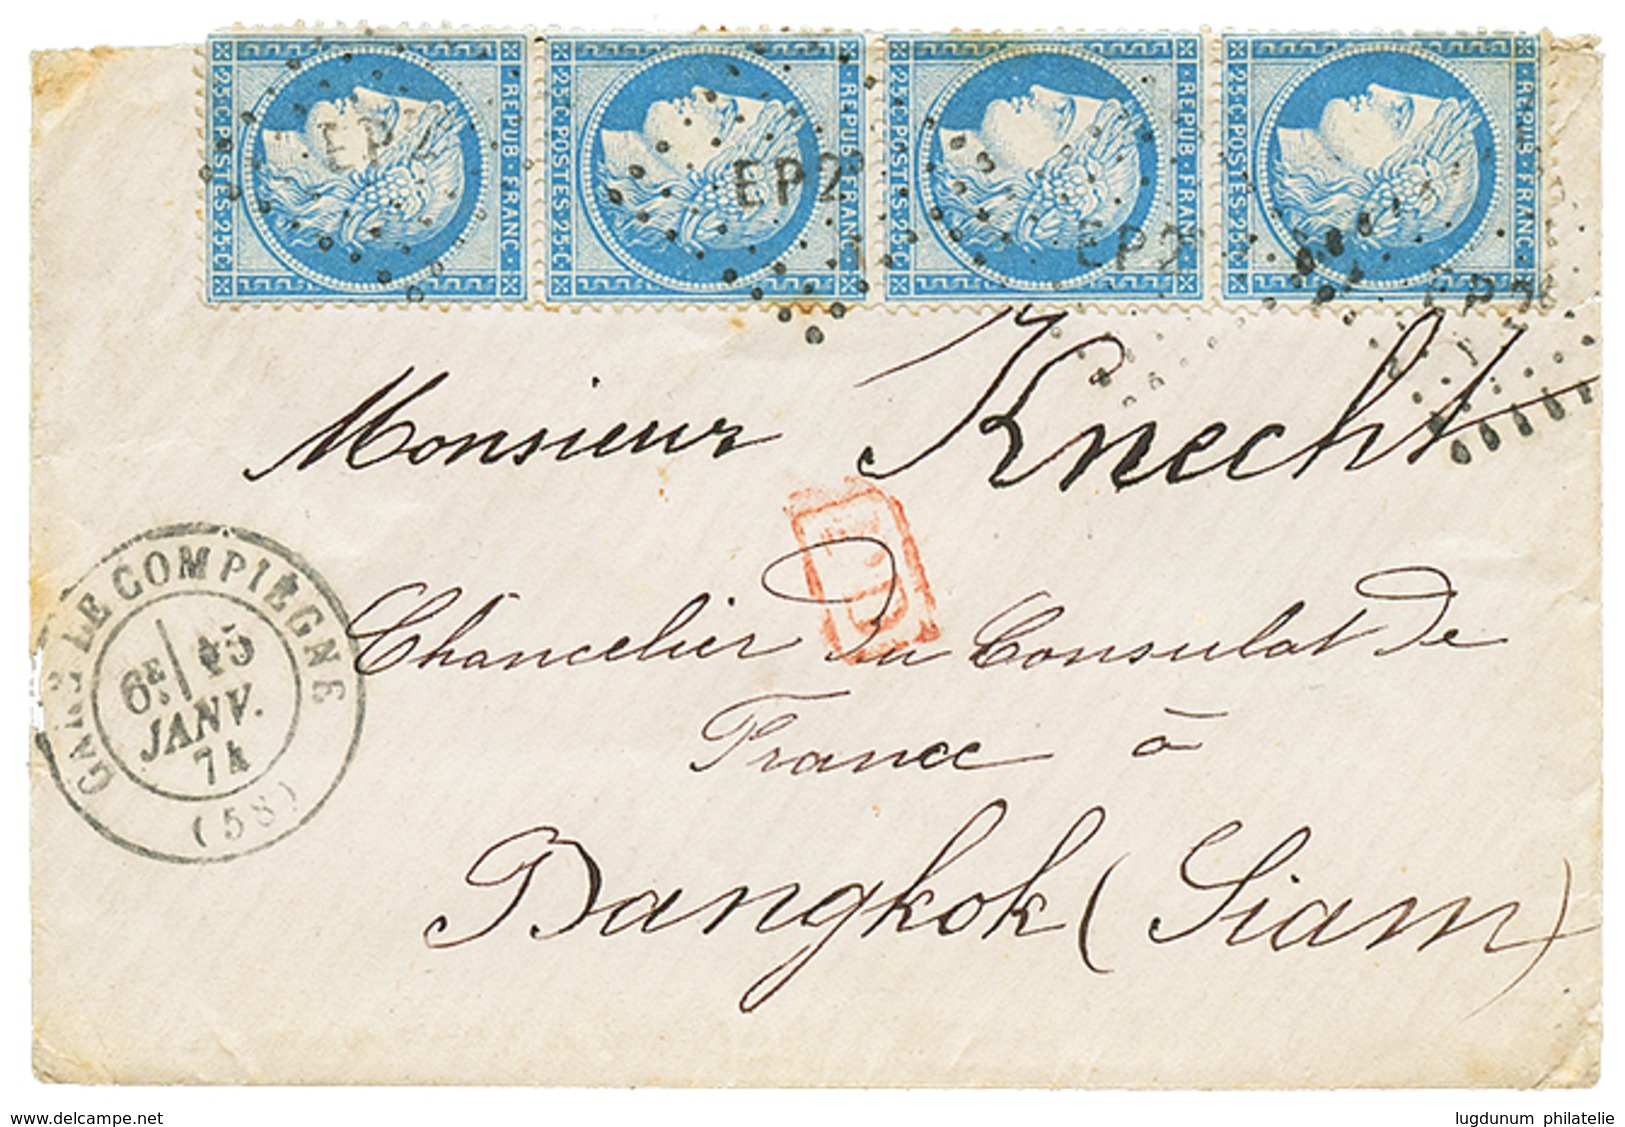 25·C·POSTES·25·C REPUB·FRANC·
25·C·POSTES·25·C REPUB·FRANC·
25·C·POSTES·25·C REPUB·FRANC·
25·C·POSTES·25·C REPUB·FRANC·
EP2 EP2 EP2 EP2
Monsieur Knecht
PD
Chancelier du Consulat de
France à
Bangkok (Siam)
GARE DE COMPIÈGNE
6E 15
JANV.
74
(58)
www.delcampe.net
lugdunum philatelie